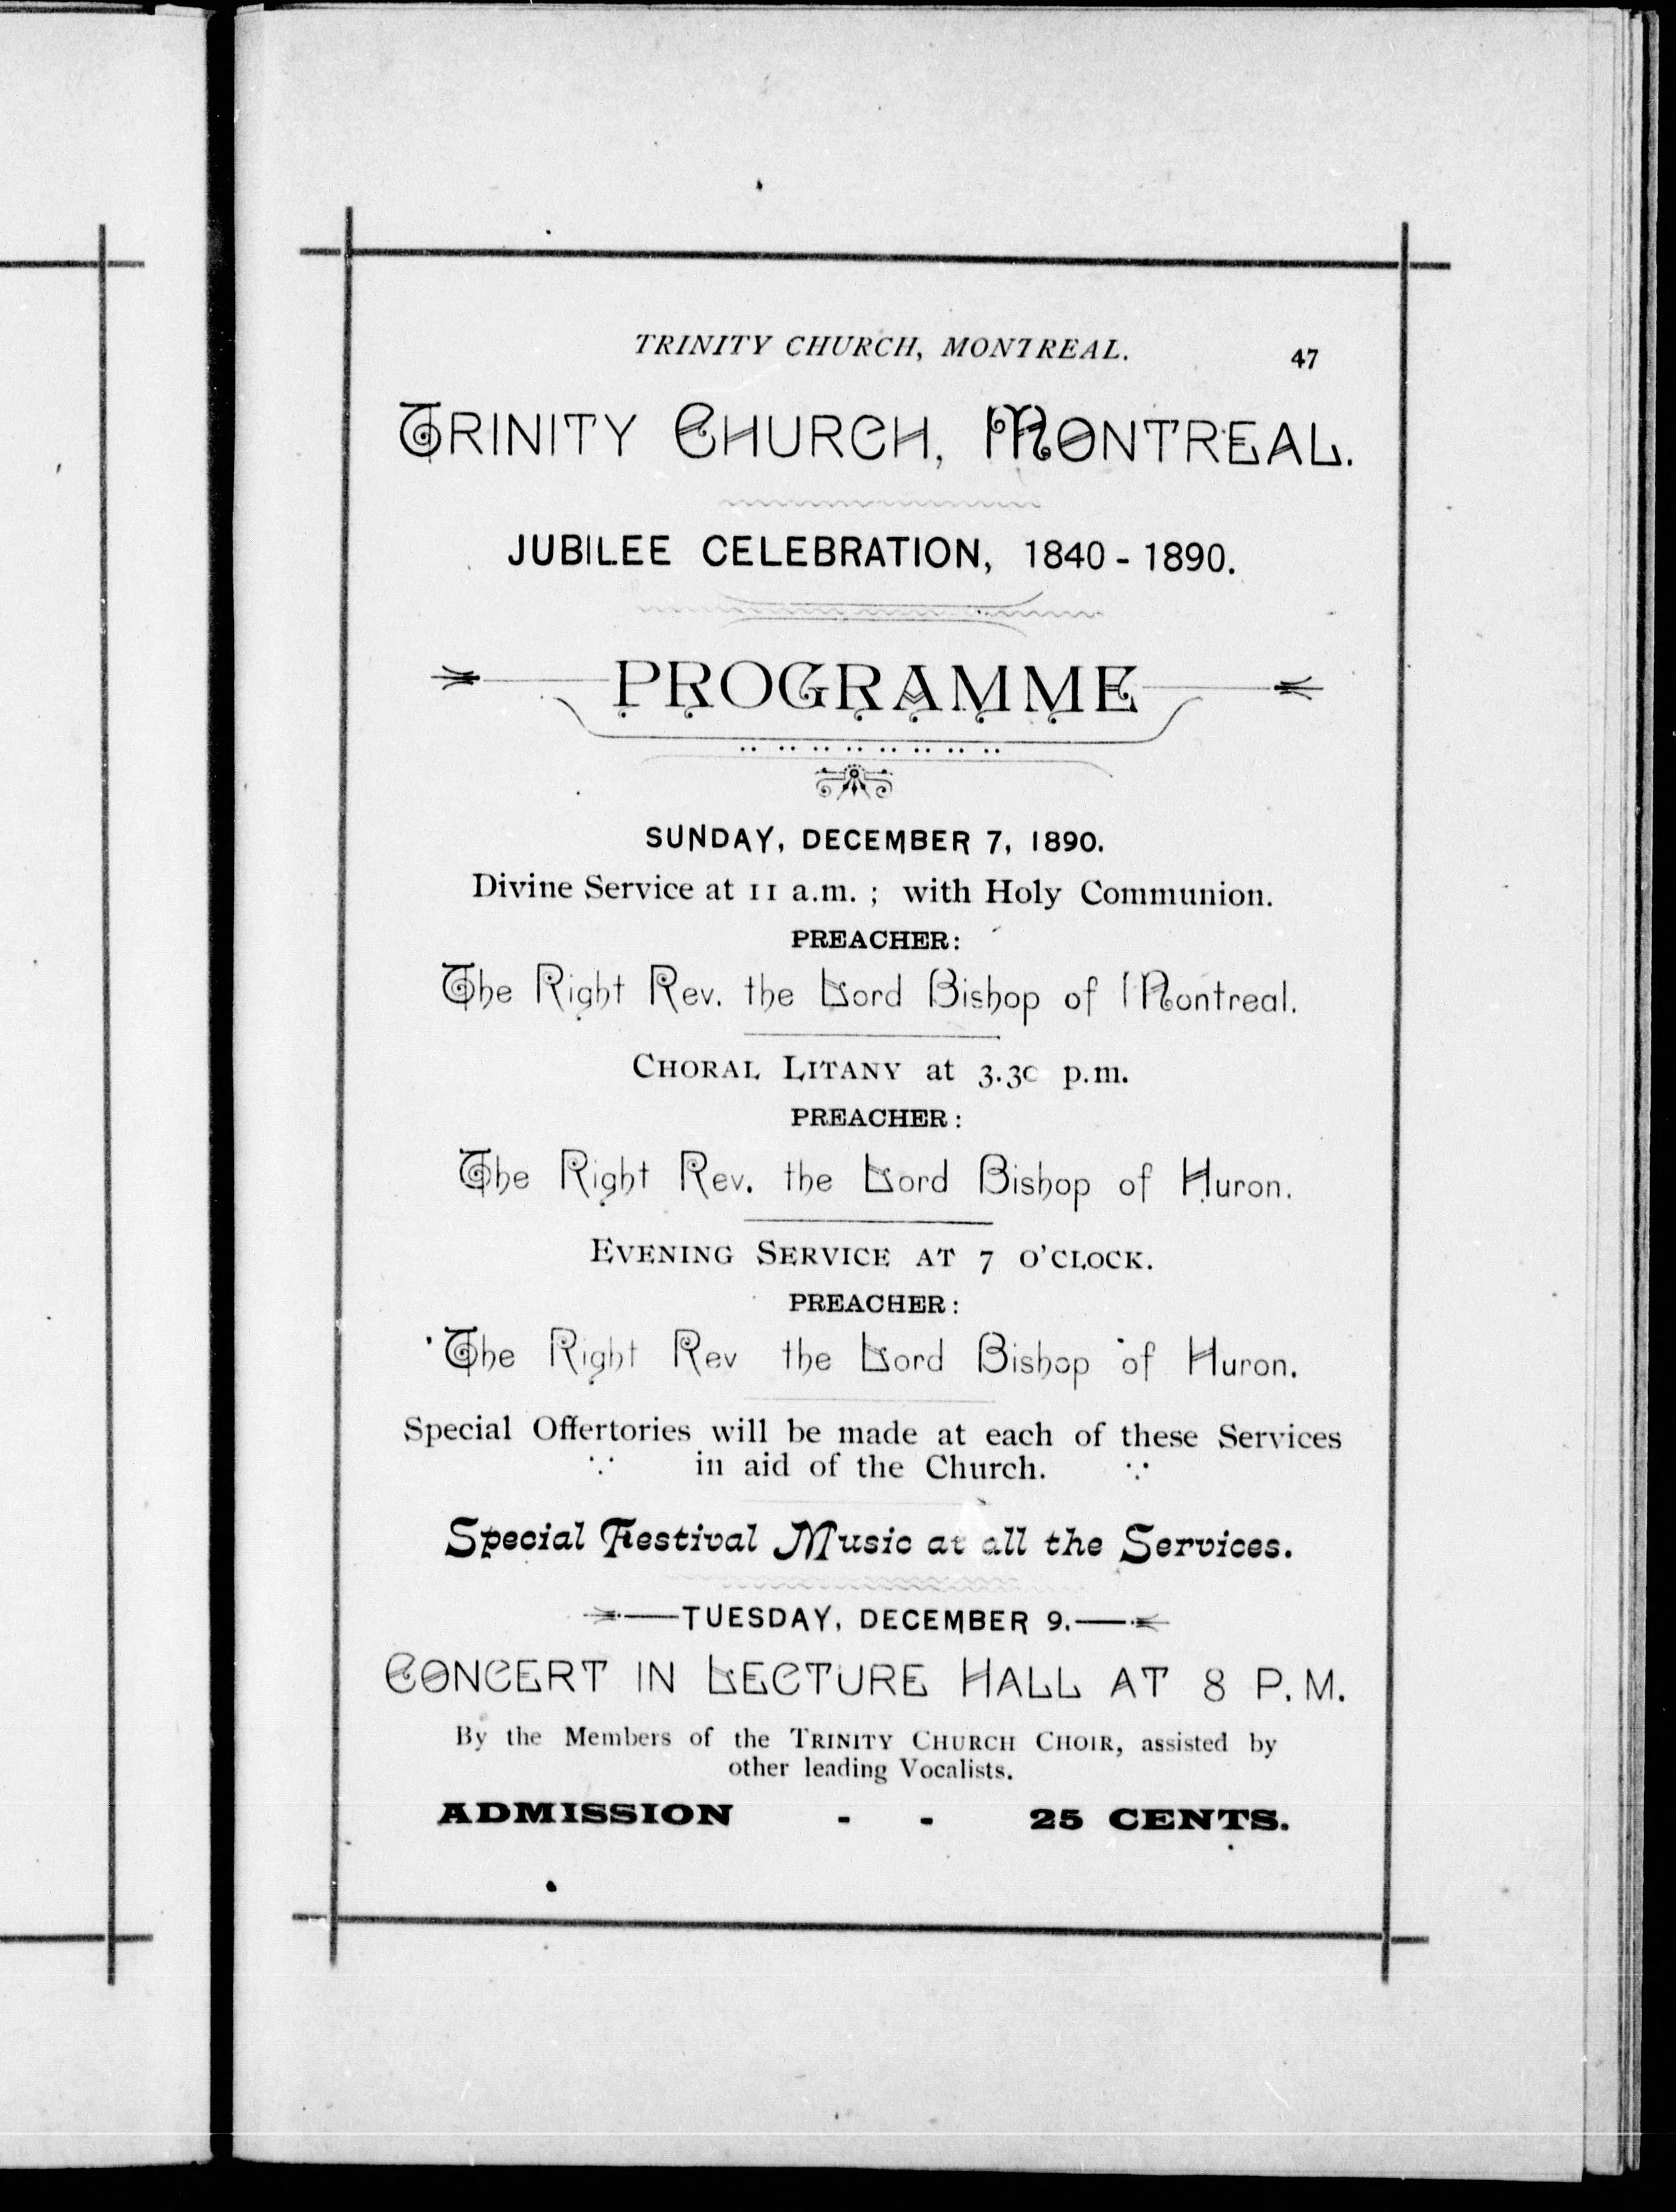 TRINITY CHURCH, MONTREAL. 47
TRINITY CHURCH, MONTREAL.
JUBILEE CELEBRATION, 1840 - 1890.
PROGRAMME
SUNDAY, DECEMBER 7, 1890.
Divine Service at 11 a.m. ; with Holy Communion.
PREACHER:
The Right Rev. the Lord Bishop of Montreal.
CHORAL LITANY at 3.30 p.m.
PREACHER:
The Right Rev. the Lord Bishop of Huron.
EVENING SERVICE AT 7 O'CLOCK.
PREACHER:
The Right Rev the Lord Bishop of Huron.
Special Offertories will be made at each of these Services
in aid of the Church.
Special Festival Music at all the Services.
TUESDAY, DECEMBER 9.
CONCERT IN LECTURE HALL AT 8 P.M.
By the Members of the TRINITY CHURCH CHOIR, assisted by
other leading Vocalists.
ADMISSION - - 25 CENTS.